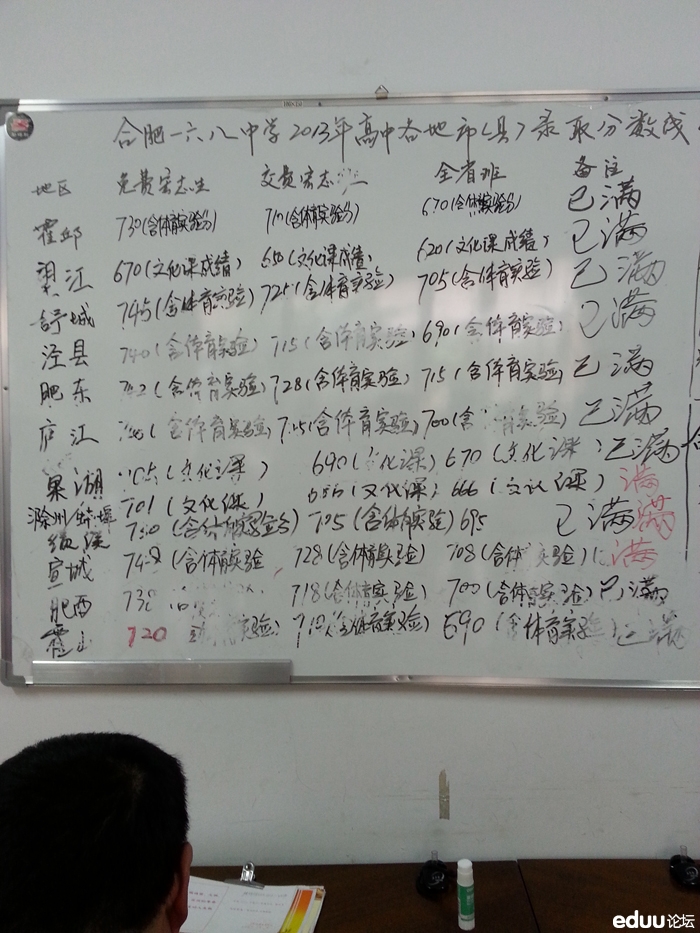 合肥一六八中学2013年高中各地市(县)录取分数线
地区 免费宏志生 交费宏志 全省班 备注
霍邱 730(含体育实验分) 710(含体育实验分) 670(含体育实验分) 已满
吴江 670(文化课成绩) 650(文化课成绩) 620(文化课成绩) 已满
舒城 745(含体育实验) 725(含体育实验) 705(含体育实验) 已满
泾县 740(含体育实验) 715(含体育实验) 690(含体育实验) 已满
肥东 742(含体育实验) 728(含体育实验) 715(含体育实验) 已满
庐江 (含体育实验) 725(含体育实验) 700(含体育实验) 已满
巢湖 705(文化课) 690(文化课) 670(文化课) 已满
滁州/蚌埠 701(文化课) 686(文化课) 666(文化课) 满
绩溪 730(含体育实验分) 705(含体育实验) 695 已满满
宣城 748(含体育实验 728(含体育实验) 708(含体育实验) 满
肥西 738 718(含体育实验) 700(含体育实验) 已满
霍山 720 育实验) 710(含体育实验) 690(含体育实验) 已满
eduu论坛